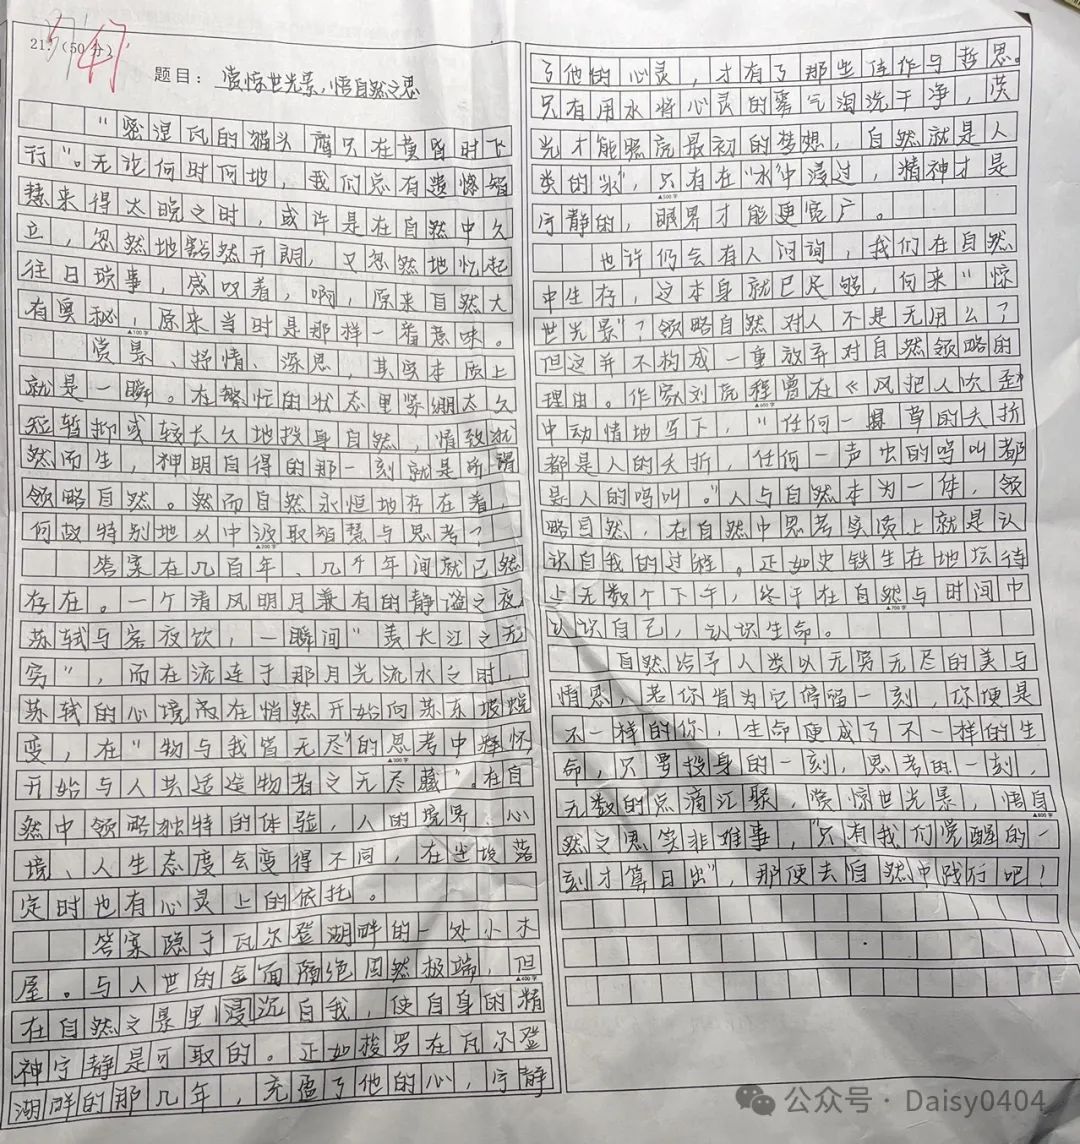 21.（50分）
47
题目：赏惊世光景，悟自然之思
“密涅瓦的猫头鹰只在黄昏时飞
行”。无论何时何地，我们总有遗憾智
慧来得太晚之时，或许是在自然中久
立，忽然地豁然开朗，又忽然地忆起
往日琐事，感叹着，啊，原来自然大
有奥秘，原来当时是那样一番意味。
▲100字
赏景、抒情、深思，其实本质上
就是一瞬。在繁忙的状态里紧绷太久
短暂抑或较长久地投身自然，情致犹
然而生，神明自得的那一刻就是所谓
领略自然。然而自然永恒地存在着，
何故特别地从中汲取智慧与思考？
▲200字
答案在几百年、几千年间就已然
存在。一个清风明月兼有的静谧之夜
苏轼与客夜饮，一瞬间“羡长江之无
穷”，而在流连于那月光流水之时，
苏轼的心境而在悄然开始向苏东坡蜕
变，在“物与我皆无尽”的思考中释怀
▲300字
开始与人共适造物者之无尽藏”。在自
然中领略独特的体验，人的境界、心
境、人生态度会变得不同，在尘埃落
定时也有心灵上的依托。
答案隐于瓦尔登湖畔的一处小木
屋。与人世的全面隔绝固然极端，但
▲400字
在自然之景里浸沉自我，使自身的精
神宁静是可取的。正如梭罗在瓦尔登
湖畔的那几年，充盈了他的心，宁静
了他的心灵，才有了那些佳作与哲思。
只有用水将心灵的雾气淘洗干净，荧
光才能照亮最初的梦想，自然就是人
类的“水”，只有在“水”中浸过，精神才是
▲500字
宁静的，眼界才能更宽广。
也许仍会有人问询，我们在自然
中生存，这本身就已足够，何来“惊
世光景”？领略自然对人不是无用么？
但这并不构成一重放弃对自然领略的
理由。作家刘亮程曾在《风把人吹歪》
▲600字
中动情地写下，“任何一棵草的夭折
都是人的夭折，任何一声虫的鸣叫都
是人的鸣叫。”人与自然本为一体，领
略自然，在自然中思考实质上就是认
识自我的过程。正如史铁生在地坛待
上无数个下午，终于在自然与时间中
▲700字
认识自己，认识生命。
自然给予人类以无穷无尽的美与
情思，若你肯为它停留一刻，你便是
不一样的你，生命便成了不一样的生
命，只要投身的一刻，思考的一刻，
无数的点滴汇聚，赏惊世光景，悟自
▲800字
然之思实非难事，“只有我们觉醒的一
刻才算日出”，那便去自然中践行吧！
公众号·Daisy0404